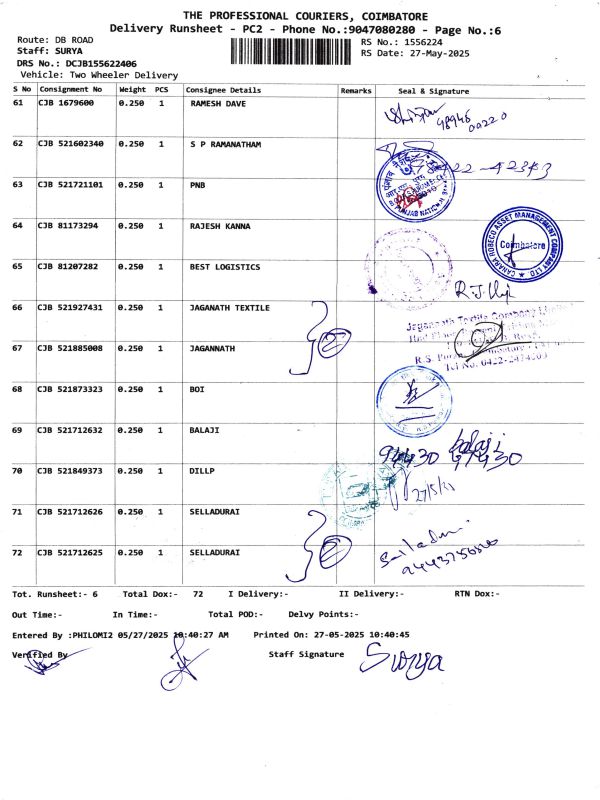 THE PROFESSIONAL COURIERS, COIMBATORE
Delivery Runsheet - PC2 - Phone No.:9047080280 - Page No.:6
Route: DB ROAD
RS No.: 1556224
Staff: SURYA
RS Date: 27-May-2025
DRS No.: DCJB155622406
Vehicle: Two Wheeler Delivery
S No Consignment No Weight PCS Consignee Details Remarks Seal & Signature
61 CJB 1679600 0.250 1 RAMESH DAVE
98946
00220
62 CJB 521602340 0.250 1 S P RAMANATHAM
63 CJB 521721101 0.250 1 PNB
PUNJAB NATION
64 CJB 81173294 0.250 1 RAJESH KANNA
CANARA ROBECO ASSET MANAGEMENT COMPANY LTD.
Coimbatore
65 CJB 81207282 0.250 1 BEST LOGISTICS
66 CJB 521927431 0.250 1 JAGANATH TEXTILE
Jagannath Textile Company Limited
67 CJB 521885008 0.250 1 JAGANNATH
2
68 CJB 521873323 0.250 1 BOI
69 CJB 521712632 0.250 1 BALAJI
balaji
94430 67430
70 CJB 521849373 0.250 1 DILLP
71 CJB 521712626 0.250 1 SELLADURAI
72 CJB 521712625 0.250 1 SELLADURAI
2
Tot. Runsheet:- 6 Total Dox:- 72 I Delivery:- II Delivery:- RTN Dox:-
Out Time:- In Time:- Total POD:- Delvy Points:-
Entered By :PHILOMI2 05/27/2025 10:40:27 AM Printed On: 27-05-2025 10:40:45
Verified By Staff Signature Surya